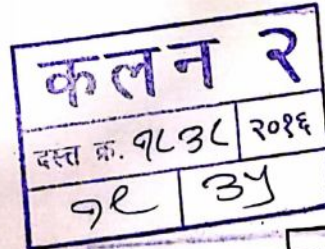 कलन २
दस्त क्र. १८३८ २०१६
१९ ३५